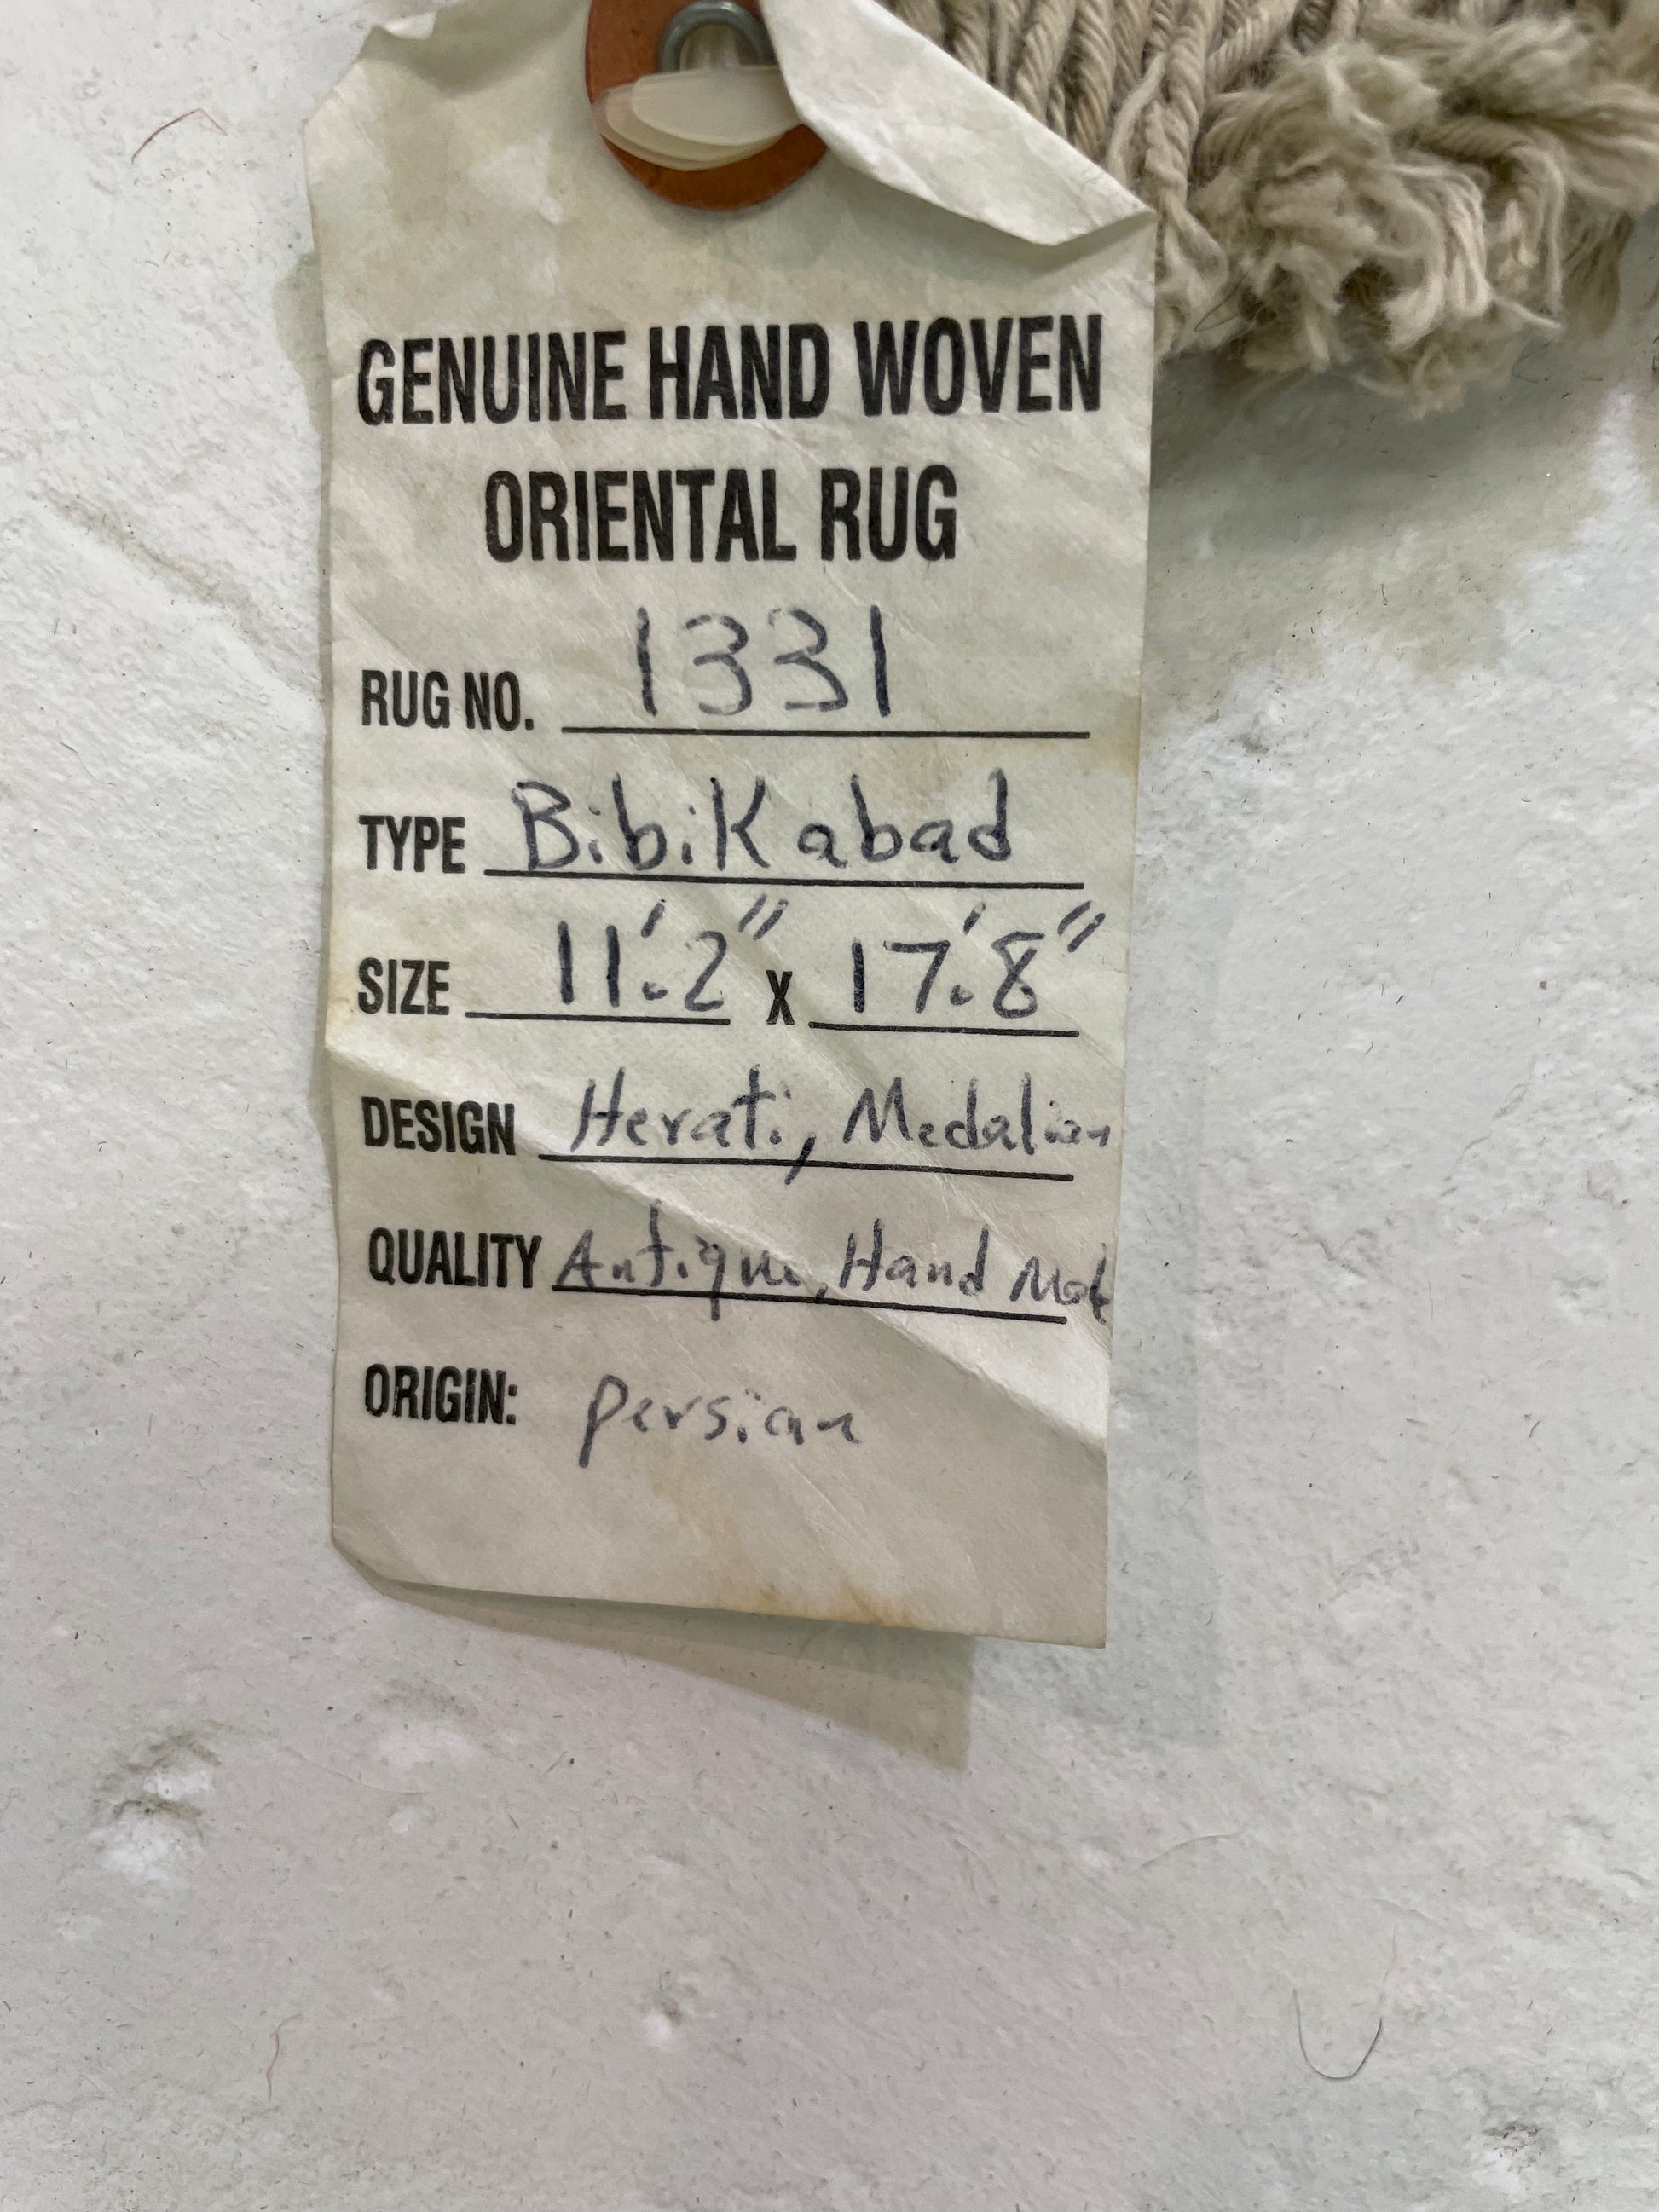 GENUINE HAND WOVEN
ORIENTAL RUG
RUG NO. 1331
TYPE BibiKabad
SIZE 11'.2" x 17'.8"
DESIGN Herati, Medalion
QUALITY Antique, Hand
ORIGIN: Persian